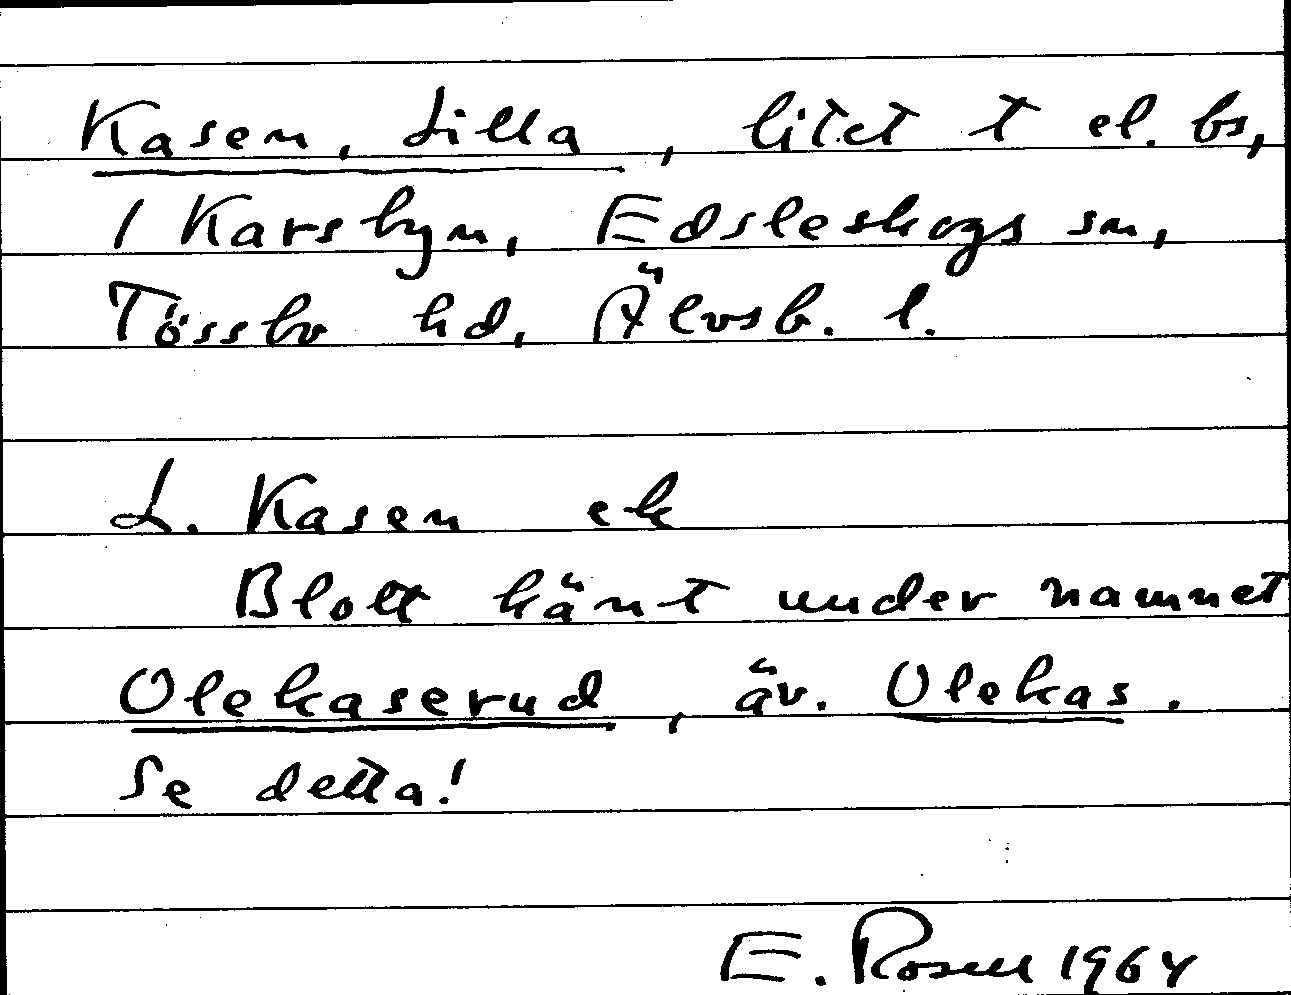 Kasen, Lilla, litet t el. bs,
i Karsbyn, Edsleskogs sn,
Tössbo hd, Älvsb. l.
L. Kasen ek
Blott känt under namnet
Olekaserud, äv. Olekas.
Se detta!
E. Rosell 1964